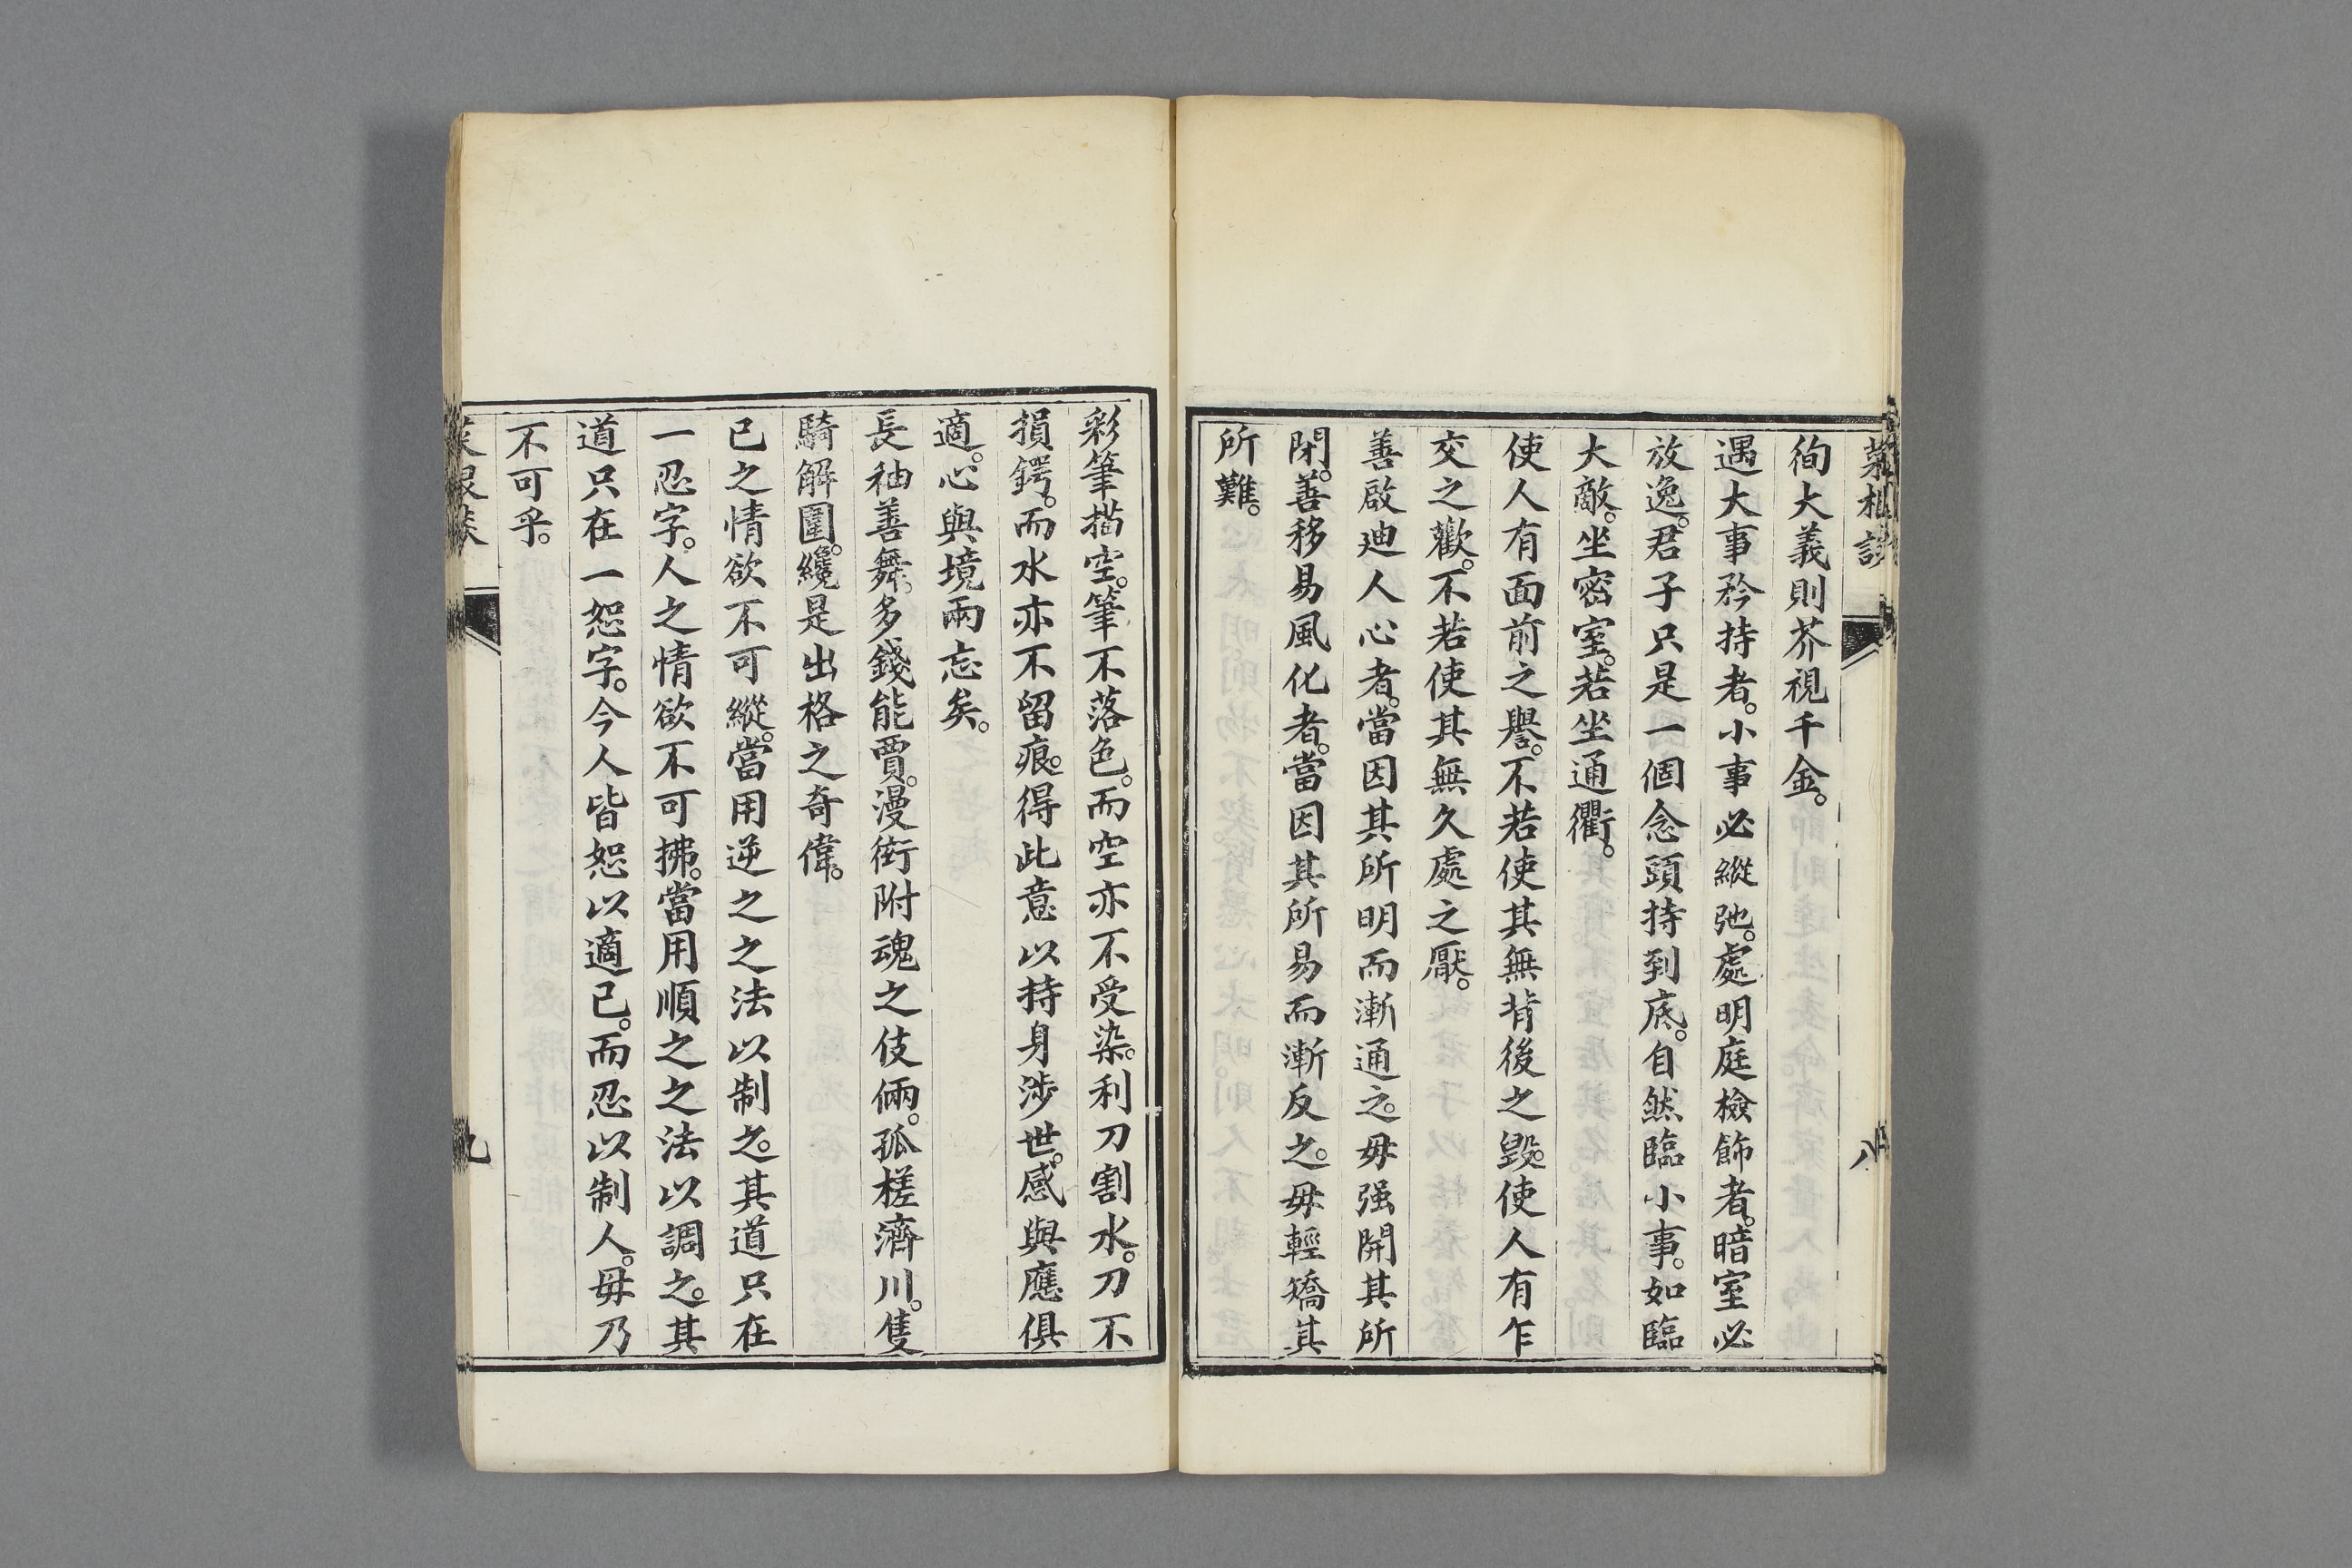 菜根談
八
徇大義則芥視千金。
遇大事矜持者。小事必縱弛。處明庭檢飾者。暗室必
放逸。君子只是一個念頭持到底。自然臨小事。如臨
大敵。坐密室。若坐通衢。
使人有面前之譽。不若使其無背後之毀。使人有乍
交之歡。不若使其無久處之厭。
善啟迪人心者。當因其所明而漸通之。毋强開其所
閉。善移易風化者。當因其所易而漸反之。毋輕矯其
所難。
彩筆描空。筆不落色。而空亦不受染。利刀割水。刀不
損鍔。而水亦不留痕。得此意以持身涉世。感與應俱
適。心與境兩忘矣。
長袖善舞。多錢能賈。漫衒附魂之伎倆。孤槎濟川。隻
騎解圍。纔是出格之奇偉。
己之情欲不可縱。當用逆之之法以制之。其道只在
一忍字。人之情欲不可拂。當用順之之法以調之。其
道只在一恕字。今人皆恕以適己。而忍以制人。毋乃
不可乎。
菜根談
九